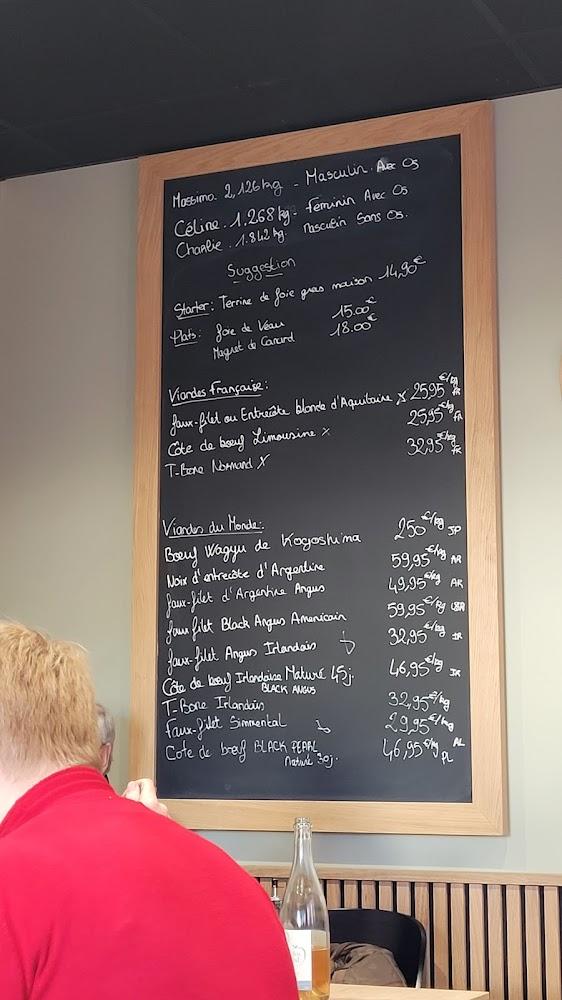 Massimo. 2,126kg - Masculin. Avec Os
Céline. 1,268kg - Féminin Avec Os
Charlie. 1.842kg. Masculin Sans Os.
Suggestion
Starter: Terrine de foie gras maison 14,90€
Plats: foie de Veau 15.00€
Magret de Canard 18.00€
Viandes Française:
faux-filet ou Entrecôte blonde d'Aquitaine x 25,95€/kg FR
Côte de bœuf Limousine x 25,95€/kg FR
T-Bone Normand X 32,95€/kg FR
Viandes du Monde:
Bœuf Wagyu de Kogoshima 250€/kg JP
Noix d'entrecôte d'Argentine 59,95€/kg AR
faux-filet d'Argentine Angus 49,95€/kg AR
faux filet Black Angus Américain 59,95€/kg USA
faux-filet Angus Irlandais 32,95€/kg IR
Côte de bœuf Irlandaise Maturé 45j. 46,95€/kg IR
BLACK ANGUS
T-Bone Irlandais 32,95€/kg
Faux-filet Simmental 29,95€/kg AL
Cote de bœuf BLACK PEARL 46,95€/kg PL
Maturé 30j.